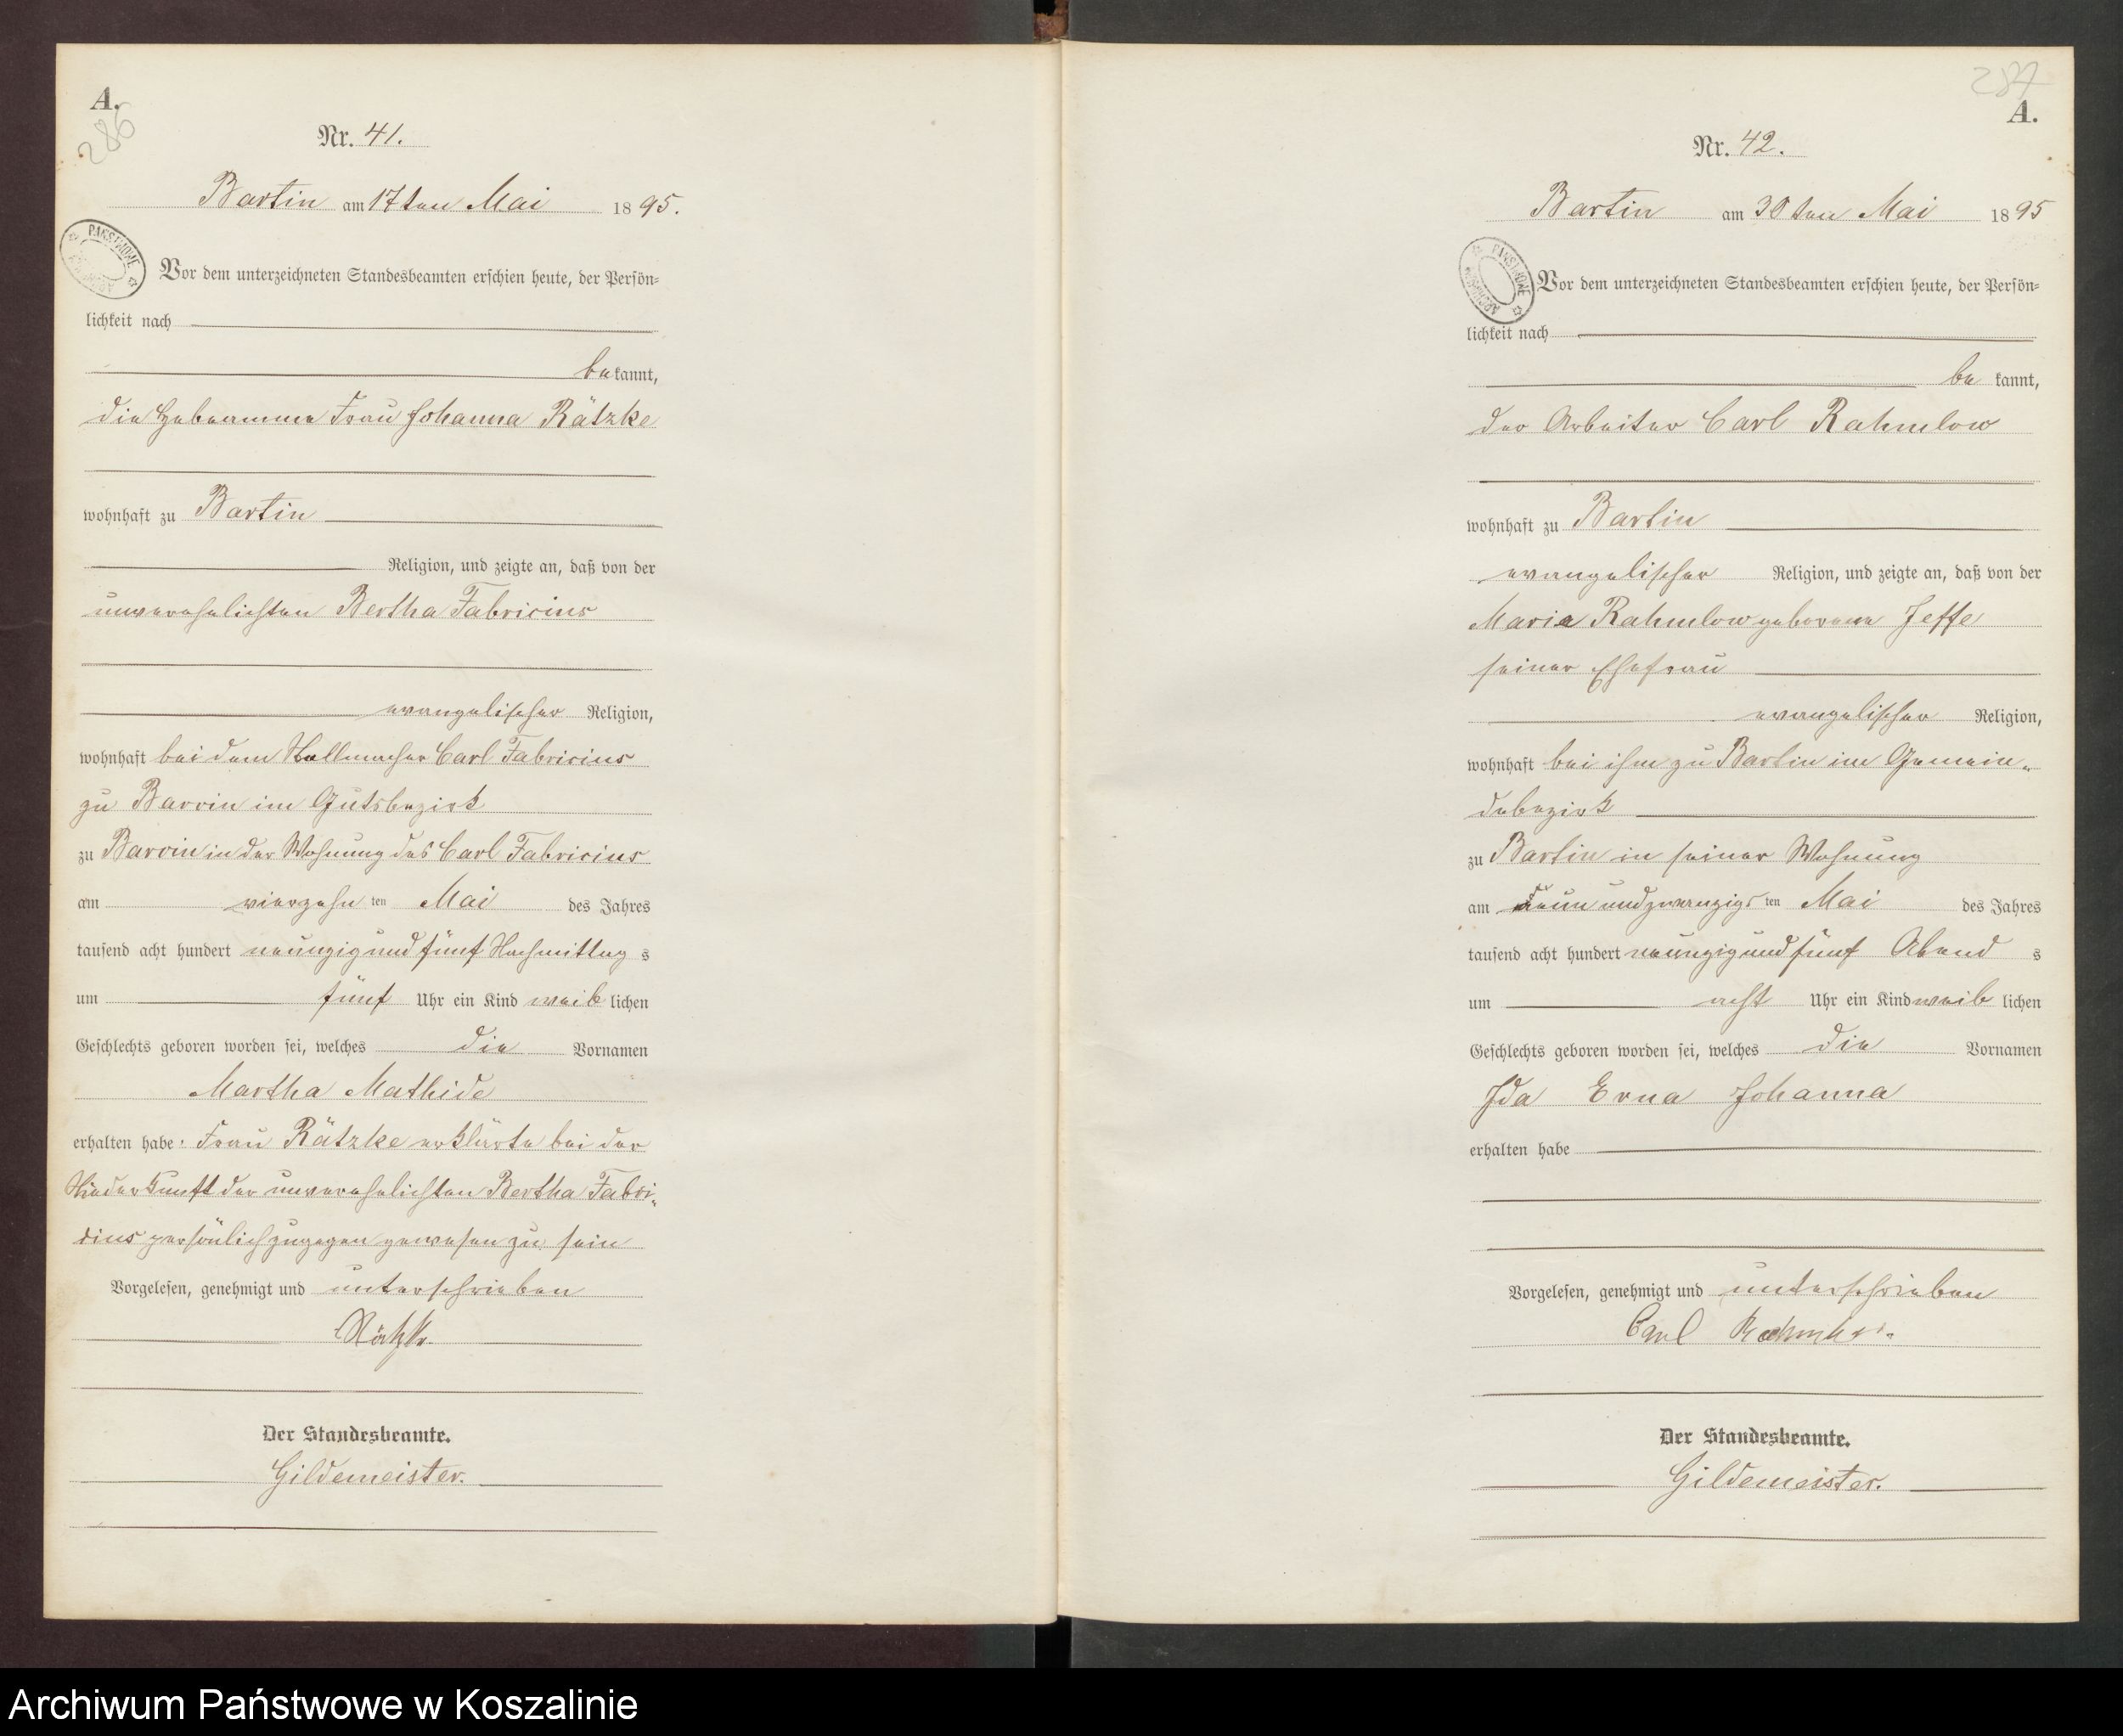 A.
286
Nr. 41.
Bartin am 17ten Mai 1895.
PAŃSTWOWE
Vor dem unterzeichneten Standesbeamten erschien heute, der Persön-
lichkeit nach
bekannt,
die Hebeamme Frau Johanna Rätzke
wohnhaft zu Bartin
Religion, und zeigte an, daß von der
unverehelichten Bertha Fabricius
evangelischer Religion,
wohnhaft bei dem Stellmacher Carl Fabricius
zu Barvin im Gutsbezirk
zu Barvin in der Wohnung des Carl Fabricius
am vierzehn ten Mai des Jahres
tausend acht hundert neunzig und fünf Nachmittag s
um fünf Uhr ein Kind weib lichen
Geschlechts geboren worden sei, welches die Vornamen
Martha Mathide
erhalten habe. Frau Rätzke erklärte bei der
Niederkunft der unverehelichten Bertha Fabri-
cius persönlich zugegen gewesen zu sein
Vorgelesen, genehmigt und unterschrieben
Rätzke
Der Standesbeamte.
Gildemeister.
287
A.
Nr. 42.
Bartin am 30ten Mai 1895
PAŃSTWOWE ARCHIWUM
Vor dem unterzeichneten Standesbeamten erschien heute, der Persön-
lichkeit nach
be kannt,
der Arbeiter Carl Rahmlow
wohnhaft zu Bartin
evangelischer Religion, und zeigte an, daß von der
Maria Rahmlow geborene Jeffe
seiner Ehefrau
evangelischer Religion,
wohnhaft bei ihm zu Bartin im Gemein-
debezirk
zu Bartin in seiner Wohnung
am neun und zwanzigs ten Mai des Jahres
tausend acht hundert neunzig und fünf Abend s
um acht Uhr ein Kind weib lichen
Geschlechts geboren worden sei, welches die Vornamen
Ida Erna Johanna
erhalten habe
Vorgelesen, genehmigt und unterschrieben
Carl Rahmlow
Der Standesbeamte.
Gildemeister.
Archiwum Państwowe w Koszalinie